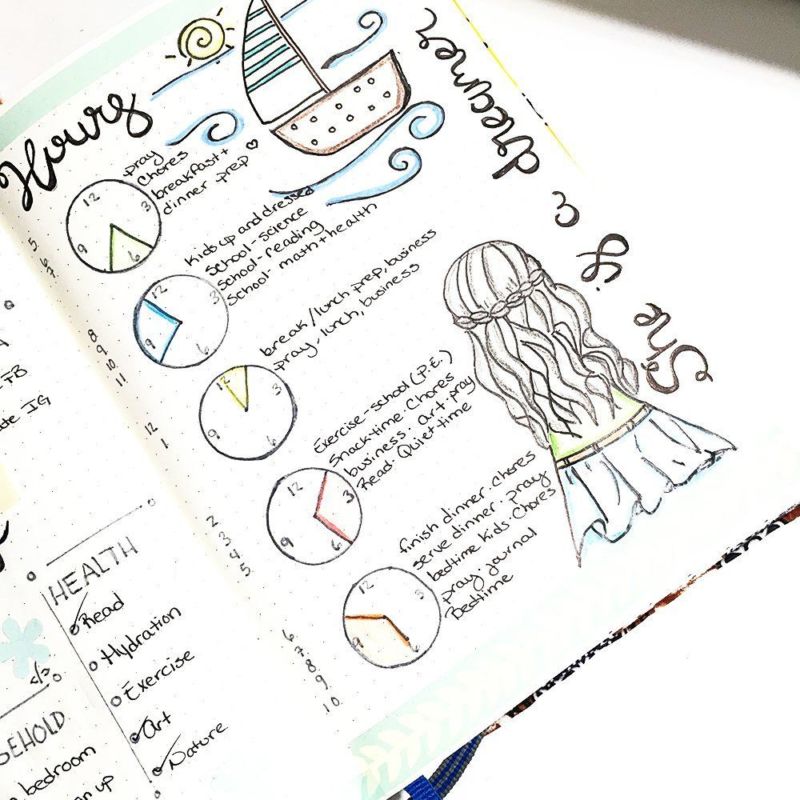 Hours
5
6
7
pray
chores
breakfast +
dinner prep ♡
12
3
6
9
8
9
10
11
Kids up and dressed
School - science
School - reading
School - math + health
12
3
6
9
12
1
break / lunch prep, business
pray, lunch, business
12
3
6
9
2
3
4
5
Exercise - school (P.E.)
Snack time · Chores
business · art · pray
Read · Quiet time
12
3
6
9
6
7
8
9
10
finish dinner · chores
serve dinner · pray
bedtime kids · Chores
pray · journal
Bedtime
12
3
6
9
She is a dreamer
FB
IG
HEALTH
Read
Hydration
Exercise
Art
Nature
</>
SEHOLD
bedroom
up